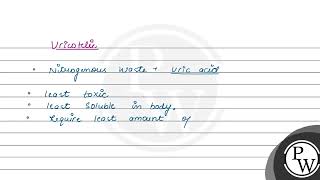 Uricotelic
• Nitrogenous waste → uric acid
• least toxic
• least soluble in body.
• Require least amount of
P
W